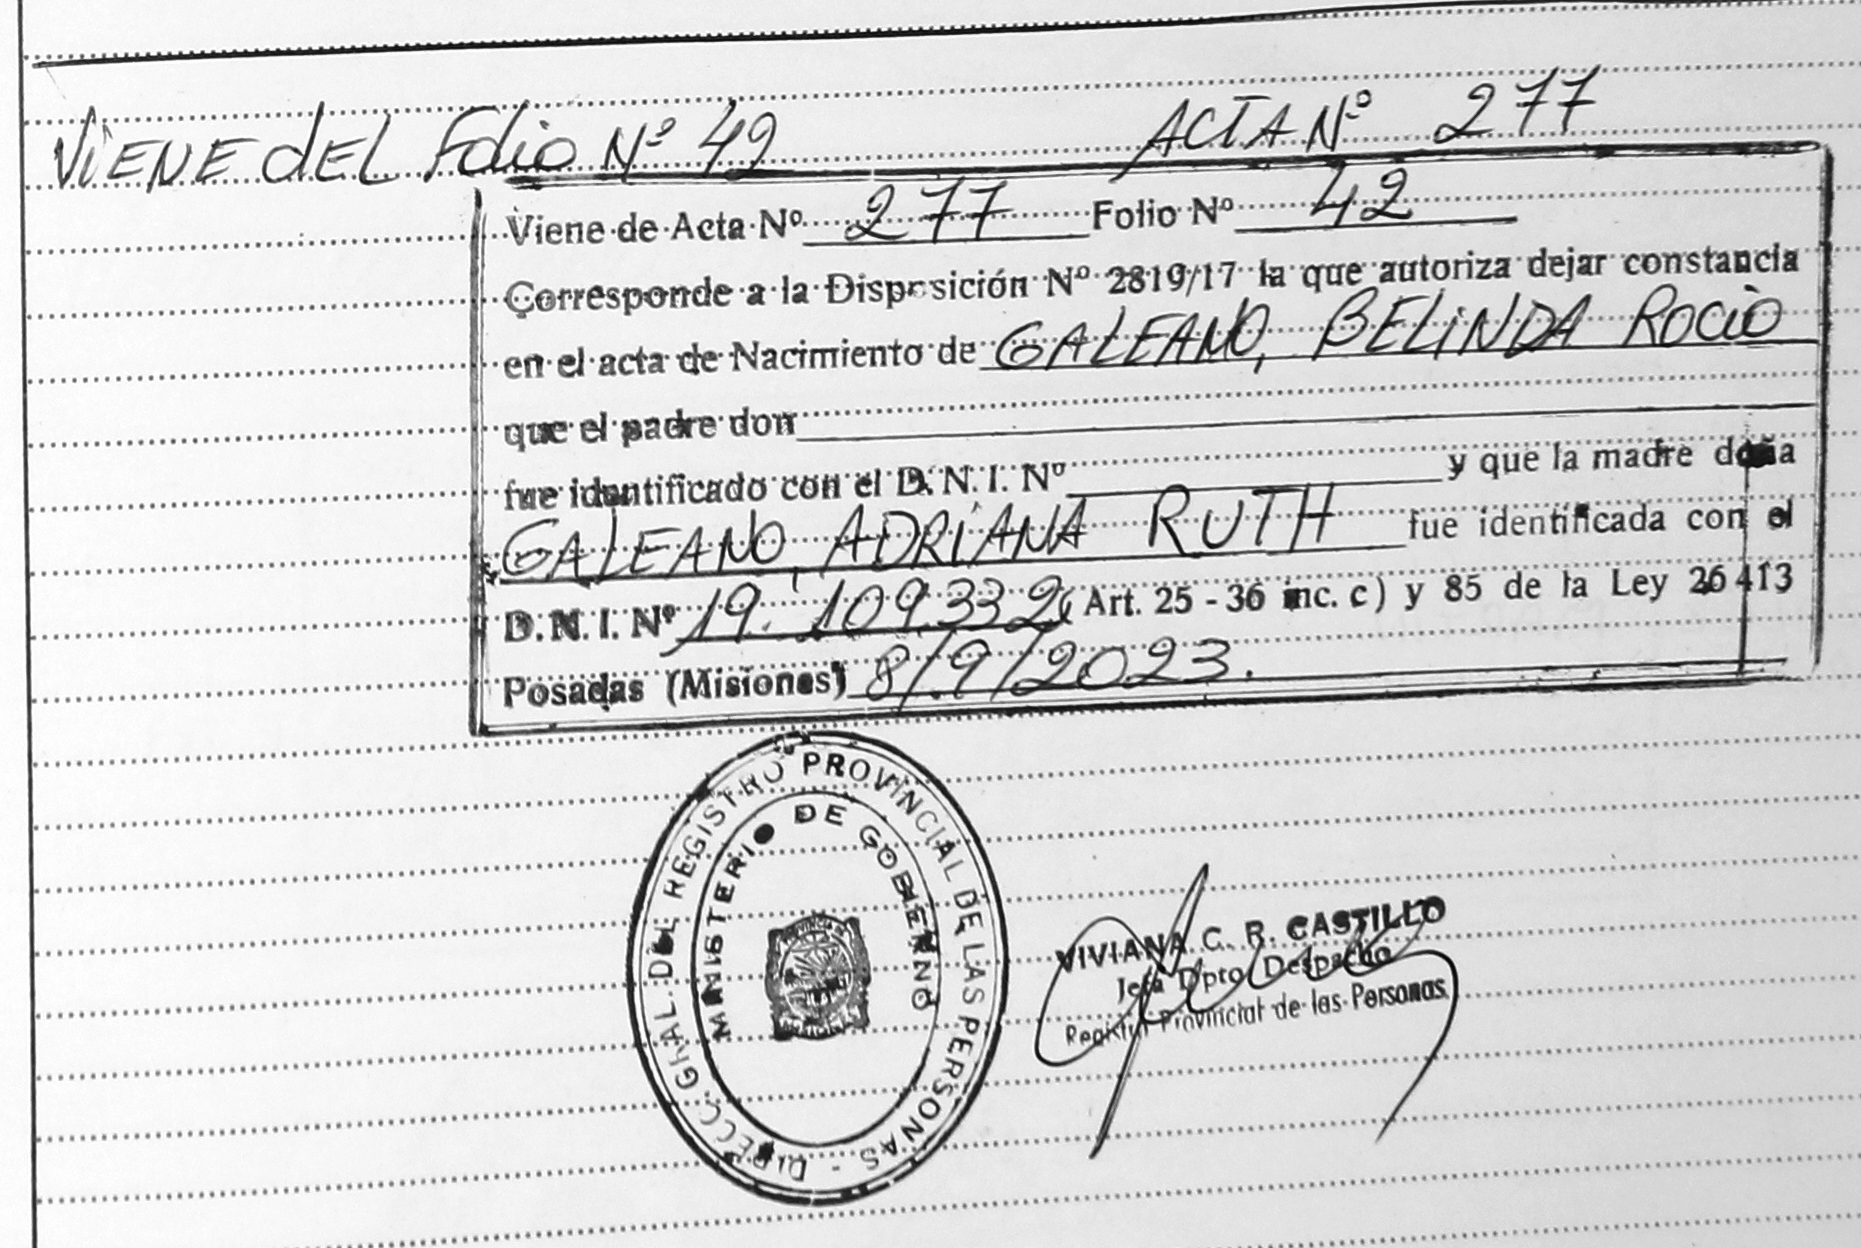 VIENE DEL Folio Nº 42 ACTA Nº 277
Viene de Acta Nº 277 Folio Nº 42
Corresponde a la Disposición Nº 2819/17 la que autoriza dejar constancia
en el acta de Nacimiento de GALEANO, BELINDA ROCIO
que el padre don
fue identificado con el D.N.I. Nº y que la madre doña
GALEANO, ADRIANA RUTH fue identificada con el
D.N.I. Nº 19.109.332 (Art. 25 - 36 inc. c) y 85 de la Ley 26413
Posadas (Misiones) 8/9/2023.
DIRECC. GRAL. DEL REGISTRO PROVINCIAL DE LAS PERSONAS -
MINISTERIO DE GOBIERNO
VIVIANA C. R. CASTILLO
Jefa Dpto Despacho
Registro Provincial de las Personas.